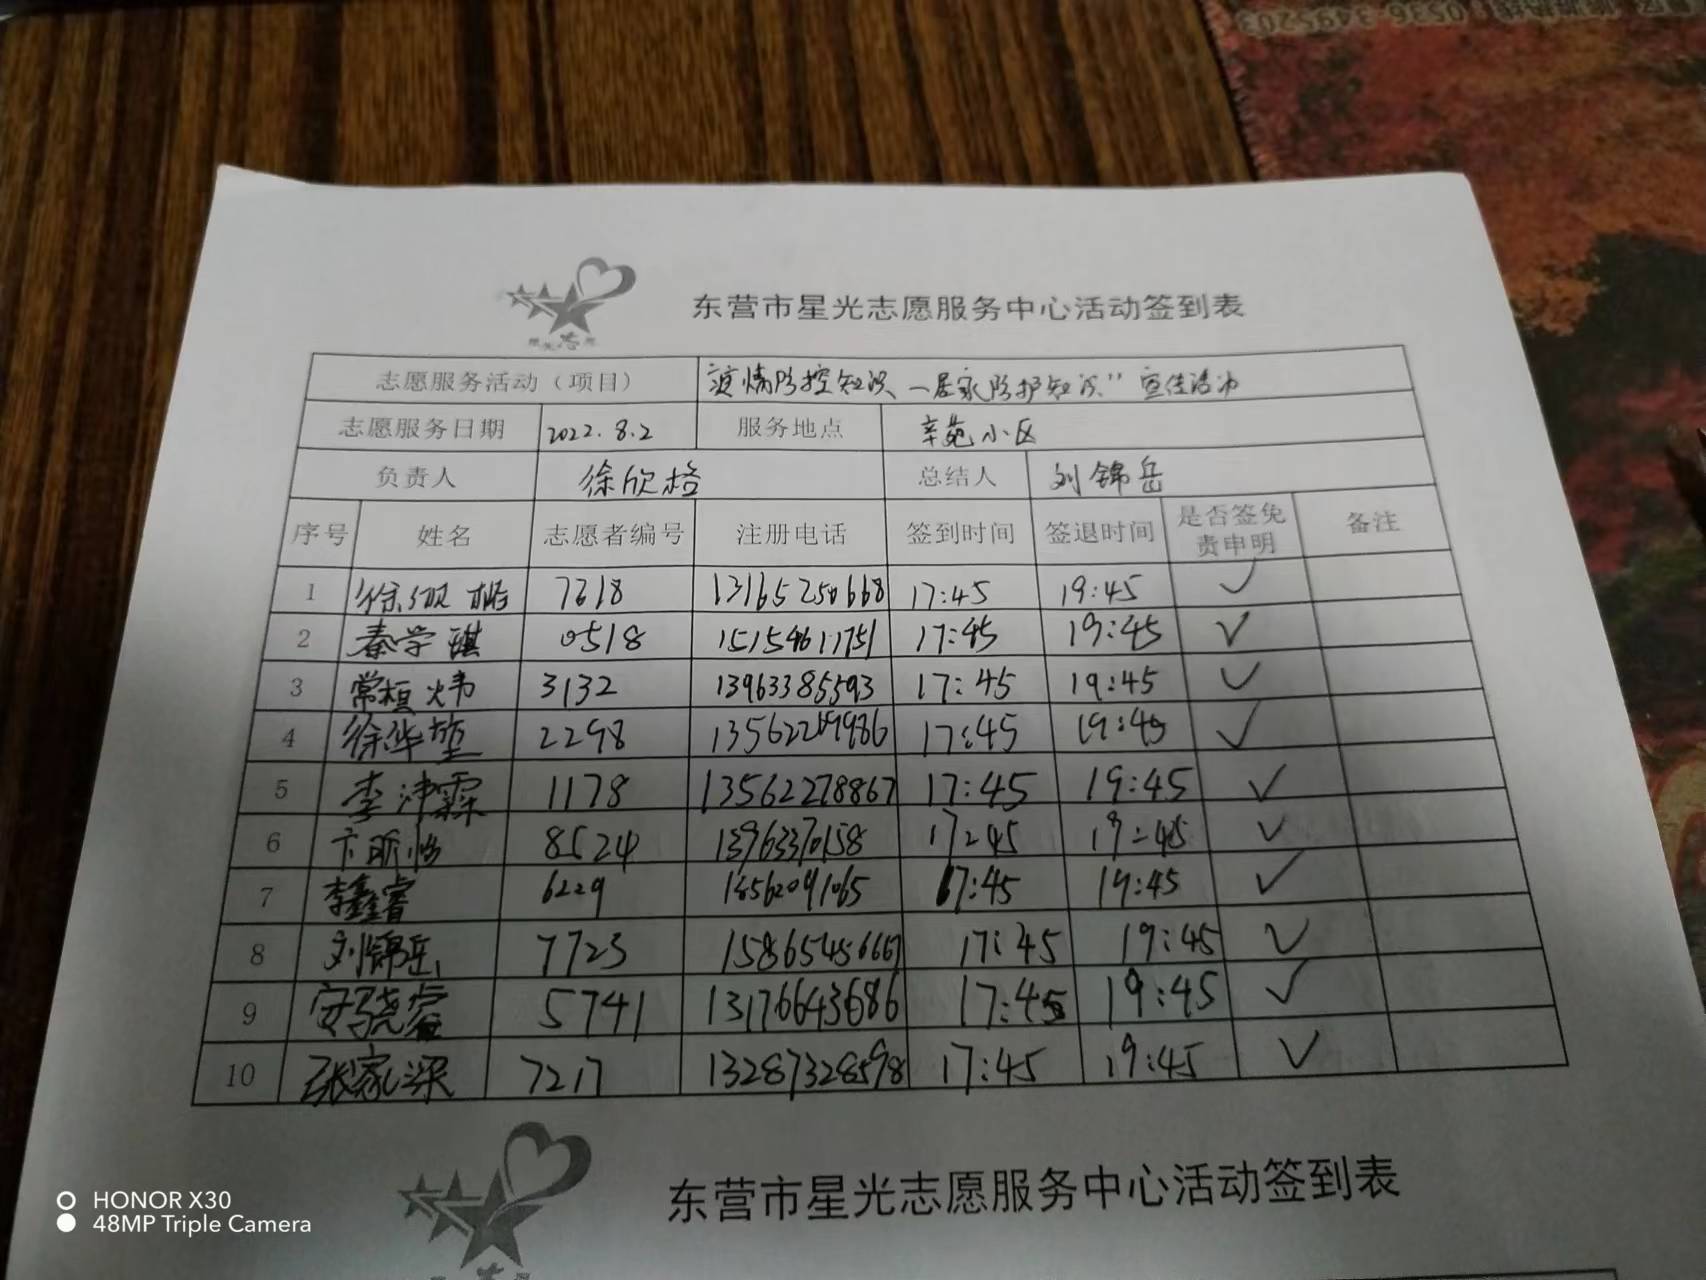 0536-3495203
东营市星光志愿服务中心活动签到表
志愿服务活动（项目） 疫情防控知识—居家防护知识” 宣传活动
志愿服务日期 2022.8.2 服务地点 辛苑小区
负责人 徐欣格 总结人 刘锦岳
序号 姓名 志愿者编号 注册电话 签到时间 签退时间 是否签免责申明 备注
1 7618 13165250668 17:45 19:45 ✓
2 秦学琪 0518 15154611751 17:45 19:45 ✓
3 常桓炜 3132 13963385593 17:45 19:45 ✓
4 徐华堃 2298 17:45 19:45 ✓
5 李沛霖 1178 13562278867 17:45 19:45 ✓
6 卞昕怡 8524 13963370158 17:45 19:45 ✓
7 李鑫睿 6229 18562091065 17:45 19:45 ✓
8 刘锦岳 7723 15865456667 17:45 19:45 ✓
9 5741 13176643686 17:45 19:45 ✓
10 张家深 7217 13287328598 17:45 19:45 ✓
东营市星光志愿服务中心活动签到表
HONOR X30
48MP Triple Camera